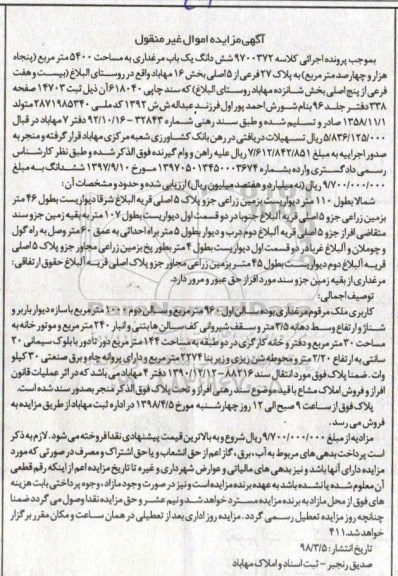 آگهی مزایده اموال غیر منقول
بموجب پرونده اجرائی کلاسه ۹۷۰۰۳۷۲ شش دانگ یک باب مرغداری به مساحت ۵۴۰۰ متر مربع (پنجاه
هزار و چهارصد متر مربع) به پلاک ۲۷ فرعی از ۵ اصلی بخش ۱۶ مهاباد واقع در روستای البلاغ (بیست و هفت
فرعی از پنج اصلی بخش شانزده مهاباد روستای البلاغ) که سند چاپی ۶۱۸۰۴۰ آن ذیل ثبت ۱۴۷۰۳ صفحه
۳۳۸ دفتر جلد ۹۶ بنام شورش احمد پور اول فرزند عبداله ش ش ۱۳۹۲ کد ملی ۲۸۷۱۹۸۵۳۴۰ متولد
۱۳۵۸/۱۱/۱ صادر و تسلیم شده و طبق سند رهنی شماره ۳۲۸۴۳ - ۹۲/۱۰/۱۶ دفتر ۷ مهاباد در قبال
۵/۸۳۶/۱۲۵/۰۰۰ ریال تسهیلات دریافتی در رهن بانک کشاورزی شعبه مرکزی مهاباد قرار گرفته و منجر به
صدور اجراییه به مبلغ ۷/۶۱۲/۸۴۲/۸۵۱ ریال علیه راهن و وام گیرنده فوق الذکر شده و طبق نظر کارشناس
رسمی دادگستری وارده بشماره ۱۳۹۷۰۵۰۱۳۴۵۰۰۰۳۶۷۴ مورخ ۱۳۹۷/۹/۱۰ ششدانگ به مبلغ
۹/۷۰۰/۰۰۰/۰۰۰ ریال (نه میلیارد و هفتصد میلیون ریال) ارزیابی شده و حدود و مشخصات آن:
شمالا بطول ۱۱۰ متر دیواریست بزمین زراعی جزو پلاک ۵ اصلی قریه البلاغ شرقا دیواریست بطول ۴۶ متر
بزمین زراعی جزو ۵ اصلی قریه آلبلاغ جنوبا در دو قسمت اول دیواریست بطول ۱۰۷ متر به بقیه زمین جزو سند
متقاضی افراز جزو ۵ اصلی قریه آلبلاغ دوم درب و دیوار بطول ۵ متر براه احداثی به عمق ۶۰ متر وصل به راه گول
و چوملان و آلبلاغ غربا در دو قسمت اول دیواریست بطول ۴ متر بطور پخ بزمین زراعی مجاور جزو پلاک ۵ اصلی
قریه آلبلاغ دوم دیواریست بطول ۴۵ متر بزمین زراعی مجاور جزو پلاک اصلی قریه آلبلاغ حقوق ارتفاقی:
مرغداری از بقیه زمین جزو سند مورد افراز حق عبور و مرور دارد.
توصیف اجمالی:
کاربری ملک مرقوم مرغداری بوده سالن اول ۹۶۰ متر مربع و سالن دوم ۱۰۰۰ متر مربع با سازه دیوار باربر و
شناژ و ارتفاع وسط دهانه ۳/۵ متر و سقف شیروانی کف سالن ها بتنی و انبار ۲۴۰ متر مربع و موتور خانه به
مساحت ۳۰ متر مربع و دفتر و خانه کارگری در دو طبقه به مساحت ۱۴۴ متر مربع دور تا دور با بلوک سیمانی ۲۰
سانتی به ارتفاع ۲/۲۰ متر و محوطه شن ریزی و بر زیربنا ۲۲۷۴ متر مربع و دارای پروانه چاه و برق صنعتی ۳۰ کیلو
وات. ضمنا پلاک فوق مورد انتقال سند ۸۸۲۱۶ - ۱۳۹۰/۱۲/۱۲ دفتر ۴ مهابادمی باشد که در اثر عملیات قانون
افراز و فروش املاک مشاع با قید موضوع سند رهنی افراز و تحت پلاک فوق الذکر منجر بصدور سند شده است.
پلاک فوق از ساعت ۹ صبح الی ۱۲ روز چهارشنبه مورخ ۱۳۹۸/۴/۵ در اداره ثبت مهاباد از طریق مزایده به
فروش می رسد.
مزادیه از مبلغ ۹/۷۰۰/۰۰۰/۰۰۰ ریال شروع و به بالاترین قیمت پیشنهادی نقدا فروخته می شود. لازم به ذکر
است پرداخت بدهی های مربوط به آب، برق، گاز اعم از حق انشعاب و یا حق اشتراک و مصرف در صورتی که مورد
مزایده دارای آنها باشد و نیز بدهی های مالیاتی و عوارض شهرداری و غیره تا تاریخ مزایده اعم از اینکه رقم قطعی
آن معلوم شده یا نشده باشد به عهده برنده مزایده است و نیز در صورت وجود مازاد، وجوه پرداختی بابت هزینه
های فوق از محل مازاد به برنده مزایده مسترد خواهد شد و نیم عشر و حق مزایده نقدا وصول می گردد ضمنا
چنانچه روز مزایده تعطیل رسمی گردد. مزایده روز اداری بعد از تعطیلی در همان ساعت و مکان مقرر برگزار
خواهد شد. ۴۱۱
تاریخ انتشار: ۹۸/۳/۵
صدیق رنجبر - ثبت اسناد و املاک مهاباد